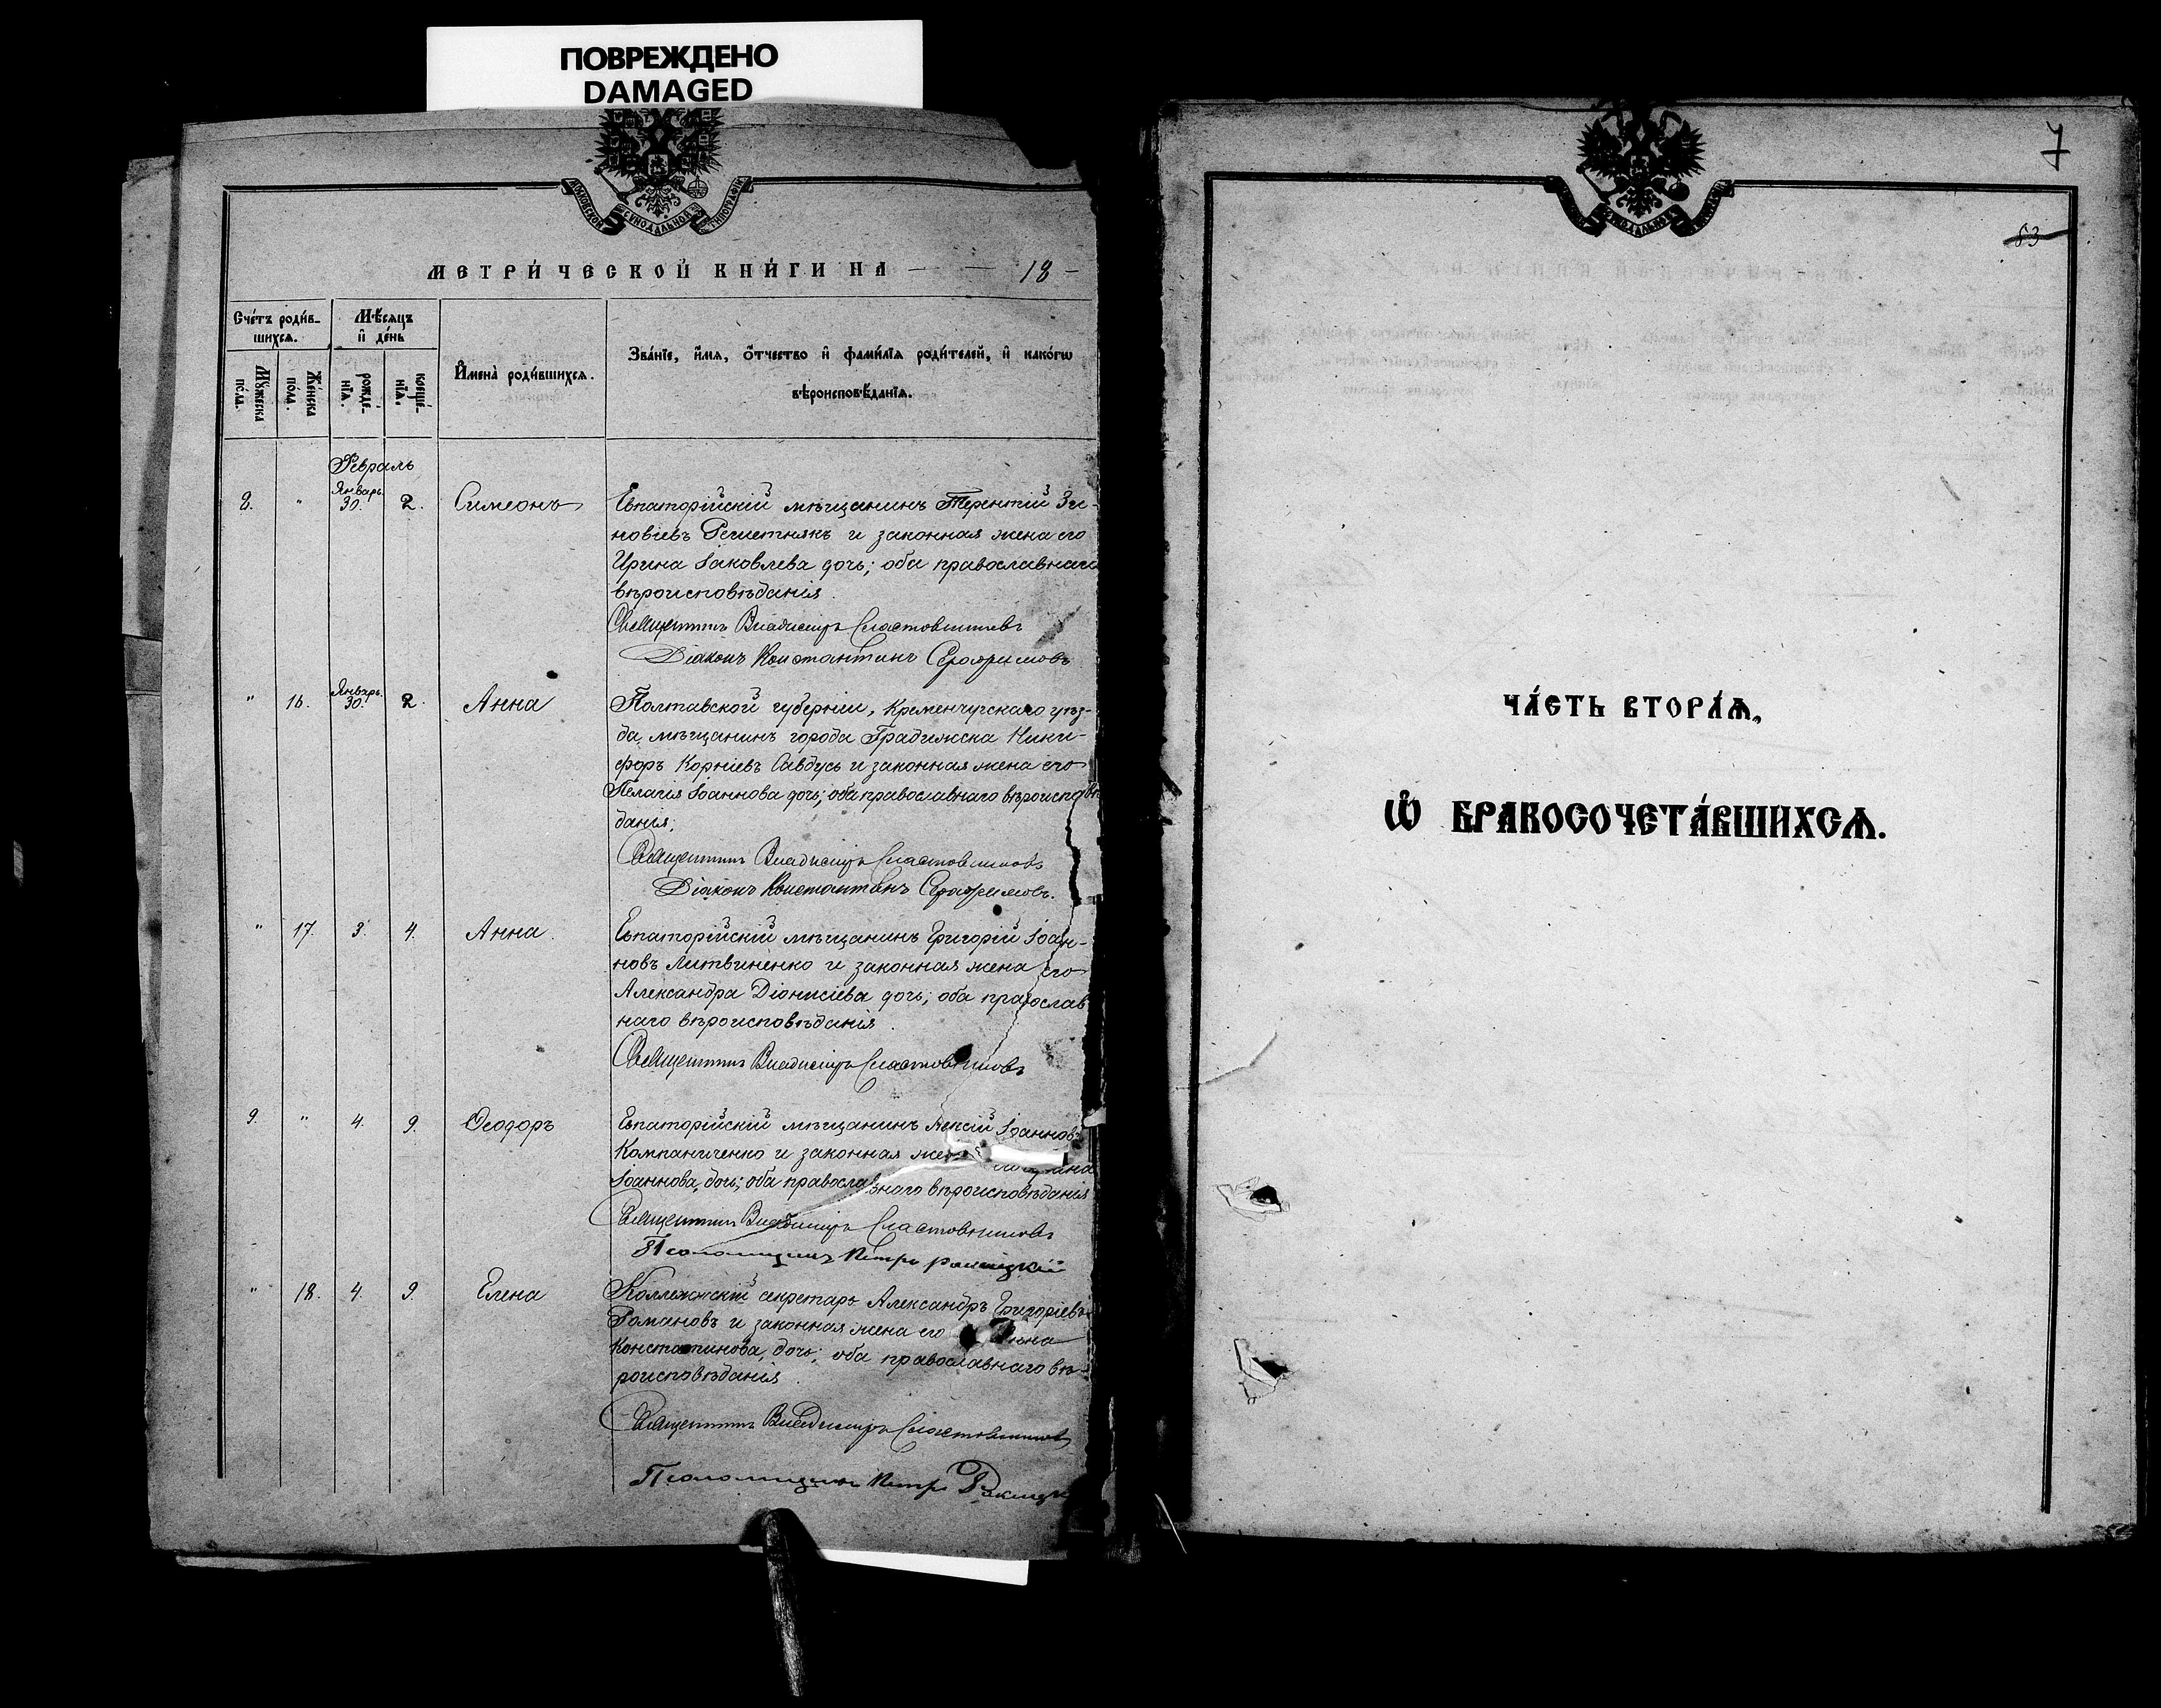 ПОВРЕЖДЕНО
DAMAGED
МОСКОВСКОЙ СѴНОДАЛЬНОЙ ТИПОГРАФІИ
МЕТРИ́ЧЕСКОЙ КНИ́ГИ НА 18
Сче́тъ роди́вшихся.
Мѣ́сяцъ и҆ де́нь
И҆мена̀ роди́вшихся.
Зва́нїе, и҆́мя, ѻ҆́тчество и҆ фами́лїя роди́телей, и҆ како́гѡ
вѣроисповѣ́данїя.
Мꙋ́жеска по́ла.
Же́нска по́ла.
рожде́нїя.
креще́нїя.
Февраль
8. " Январь 30. 2. Симеонъ
Евпаторійскій мѣщанинъ Терентій Зи-
новіевъ Решетнякъ и законная жена его
Ирина Іаковлева дочь; оба православнаго
вѣроисповѣданія.
Священникъ Владиміръ
Діаконъ Константинъ Серафимовъ
" 16. Январь 30. 2. Анна
Полтавской губерніи, Кременчугскаго уѣз-
да, мѣщанинъ города Градижска Ники-
форъ Корніевъ Савдусь и законная жена его
Пелагія Іоаннова дочь; оба православнаго вѣроисповѣ
данія;
Священникъ Владиміръ
Діаконъ Константинъ Серафимовъ.
" 17. 3. 4. Анна.
Евпаторійскій мѣщанинъ Григорій Іоан-
новъ Литвиненко и законная жена его
Александра Діонисіева дочь; оба православ
наго вѣроисповѣданія.
Священникъ Владиміръ
9. " 4. 9. Ѳеодоръ
Евпаторійскій мѣщанинъ Алексій Іоанновъ
Компаниченко и законная
Іоаннова, дочь; оба православнаго вѣроисповѣданія
Священникъ Владиміръ
Псаломщикъ Петръ Ракицкій
" 18. 4. 9. Елена
Коллежскій секретарь Александръ Григоріевъ
Романовъ и законная жена его
Константинова, дочь; оба православнаго вѣ-
роисповѣданія.
Священникъ Владиміръ
Псаломщикъ Петръ
7
83
ЧА́СТЬ ВТОРА́Ѧ,
Ѡ҆ БРАКОСОЧЕТА́ВШИХСѦ.